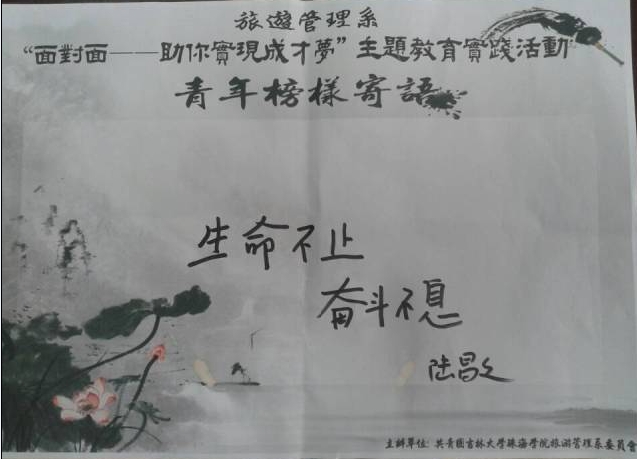 旅遊管理系
“面對面——助你實現成才夢”主題教育實踐活動
青年榜樣寄語
生命不止
奋斗不息
陆昌
主辦單位:共青團吉林大學珠海學院旅游管理系委員會